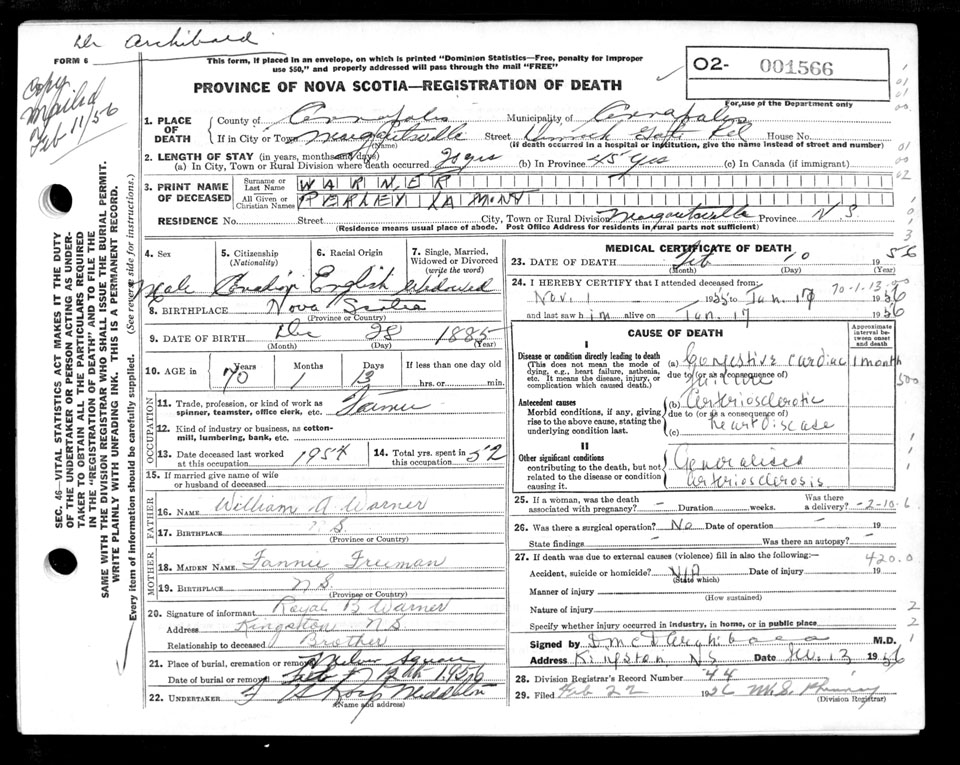 Dr Archibald
FORM 6
Copy
Mailed
Feb 11/56
This form, if placed in an envelope, on which is printed "Dominion Statistics—Free, penalty for improper
use $50," and properly addressed will pass through the mail "FREE"
PROVINCE OF NOVA SCOTIA—REGISTRATION OF DEATH
O2- 001566
For use of the Department only
1. PLACE OF DEATH
County of Annapolis Municipality of Annapolis
If in City or Town Margaretsville (Name) Street Rd House No.
(If death occurred in a hospital or institution, give the name instead of street and number)
2. LENGTH OF STAY (in years, months and days)
(a) In City, Town or Rural Division where death occurred yrs (b) In Province 45 yrs (c) In Canada (if immigrant)
3. PRINT NAME OF DECEASED
Surname or Last Name WARNER
All Given or Christian Names PERLEY LAMONT
RESIDENCE No. Street City, Town or Rural Division Margaretsville Province N.S.
(Residence means usual place of abode. Post Office Address for residents in rural parts not sufficient)
4. Sex
Male
5. Citizenship (Nationality)
Canadian
6. Racial Origin
English
7. Single, Married, Widowed or Divorced (write the word)
Widowed
8. BIRTHPLACE Nova Scotia
(Province or Country)
9. DATE OF BIRTH Dec 28 1885
(Month) (Day) (Year)
10. AGE in Years Months Days If less than one day old
70 1 13 hrs. or min.
OCCUPATION
11. Trade, profession, or kind of work as
spinner, teamster, office clerk, etc. Farmer
12. Kind of industry or business, as cotton-
mill, lumbering, bank, etc.
13. Date deceased last worked at this occupation 1954
14. Total yrs. spent in this occupation 52
15. If married give name of wife
or husband of deceased
FATHER
16. NAME William A Warner
17. BIRTHPLACE N.S.
(Province or Country)
MOTHER
18. MAIDEN NAME Fannie Freeman
19. BIRTHPLACE N.S.
(Province or Country)
20. Signature of informant Royal B Warner
Address Kingston N S
Relationship to deceased Brother
21. Place of burial, cremation or removal Square
Date of burial or removal Feb 1956
22. UNDERTAKER Middleton
(Name and address)
MEDICAL CERTIFICATE OF DEATH
23. DATE OF DEATH Feb 10 1956
(Month) (Day) (Year)
24. I HEREBY CERTIFY that I attended deceased from: 70-1-13
Nov. 1 1955 to Jan. 17 1956
and last saw him alive on Jan. 17 1956
CAUSE OF DEATH
Approximate interval between onset and death
I
Disease or condition directly leading to death
(This does not mean the mode of
dying, e.g., heart failure, asthenia,
etc. It means the disease, injury, or
complication which caused death.)
(a) Congestive Cardiac 1 month
Failure
due to (or as a consequence of)
Antecedent causes
Morbid conditions, if any, giving
rise to the above cause, stating the
underlying condition last.
(b) Arteriosclerotic
due to (or as a consequence of)
Heart Disease
(c)
II
Other significant conditions
contributing to the death, but not
related to the disease or condition
causing it.
Generalised
arteriosclerosis.
25. If a woman, was the death associated with pregnancy? - Duration weeks. Was there a delivery? -2-10-6
26. Was there a surgical operation? No Date of operation - 19
State findings - Was there an autopsy? -
27. If death was due to external causes (violence) fill in also the following: 420.0
Accident, suicide or homicide? (State which) Date of injury 19
Manner of injury
(How sustained)
Nature of injury
Specify whether injury occurred in industry, in home, or in public place
Signed by Archibald M.D.
Address Kingston NS Date 13 1956
28. Division Registrar's Record Number 44
29. Filed Feb 22 1956
(Division Registrar)
SEC. 46 VITAL STATISTICS ACT MAKES IT THE DUTY
OF THE UNDERTAKER OR PERSON ACTING AS UNDER-
TAKER TO OBTAIN ALL THE PARTICULARS REQUIRED
IN THE "REGISTRATION OF DEATH" AND TO FILE THE
SAME WITH THE DIVISION REGISTRAR WHO SHALL ISSUE THE BURIAL PERMIT.
WRITE PLAINLY WITH UNFADING INK. THIS IS A PERMANENT RECORD.
Every item of information should be carefully supplied. (See reverse side for instructions.)